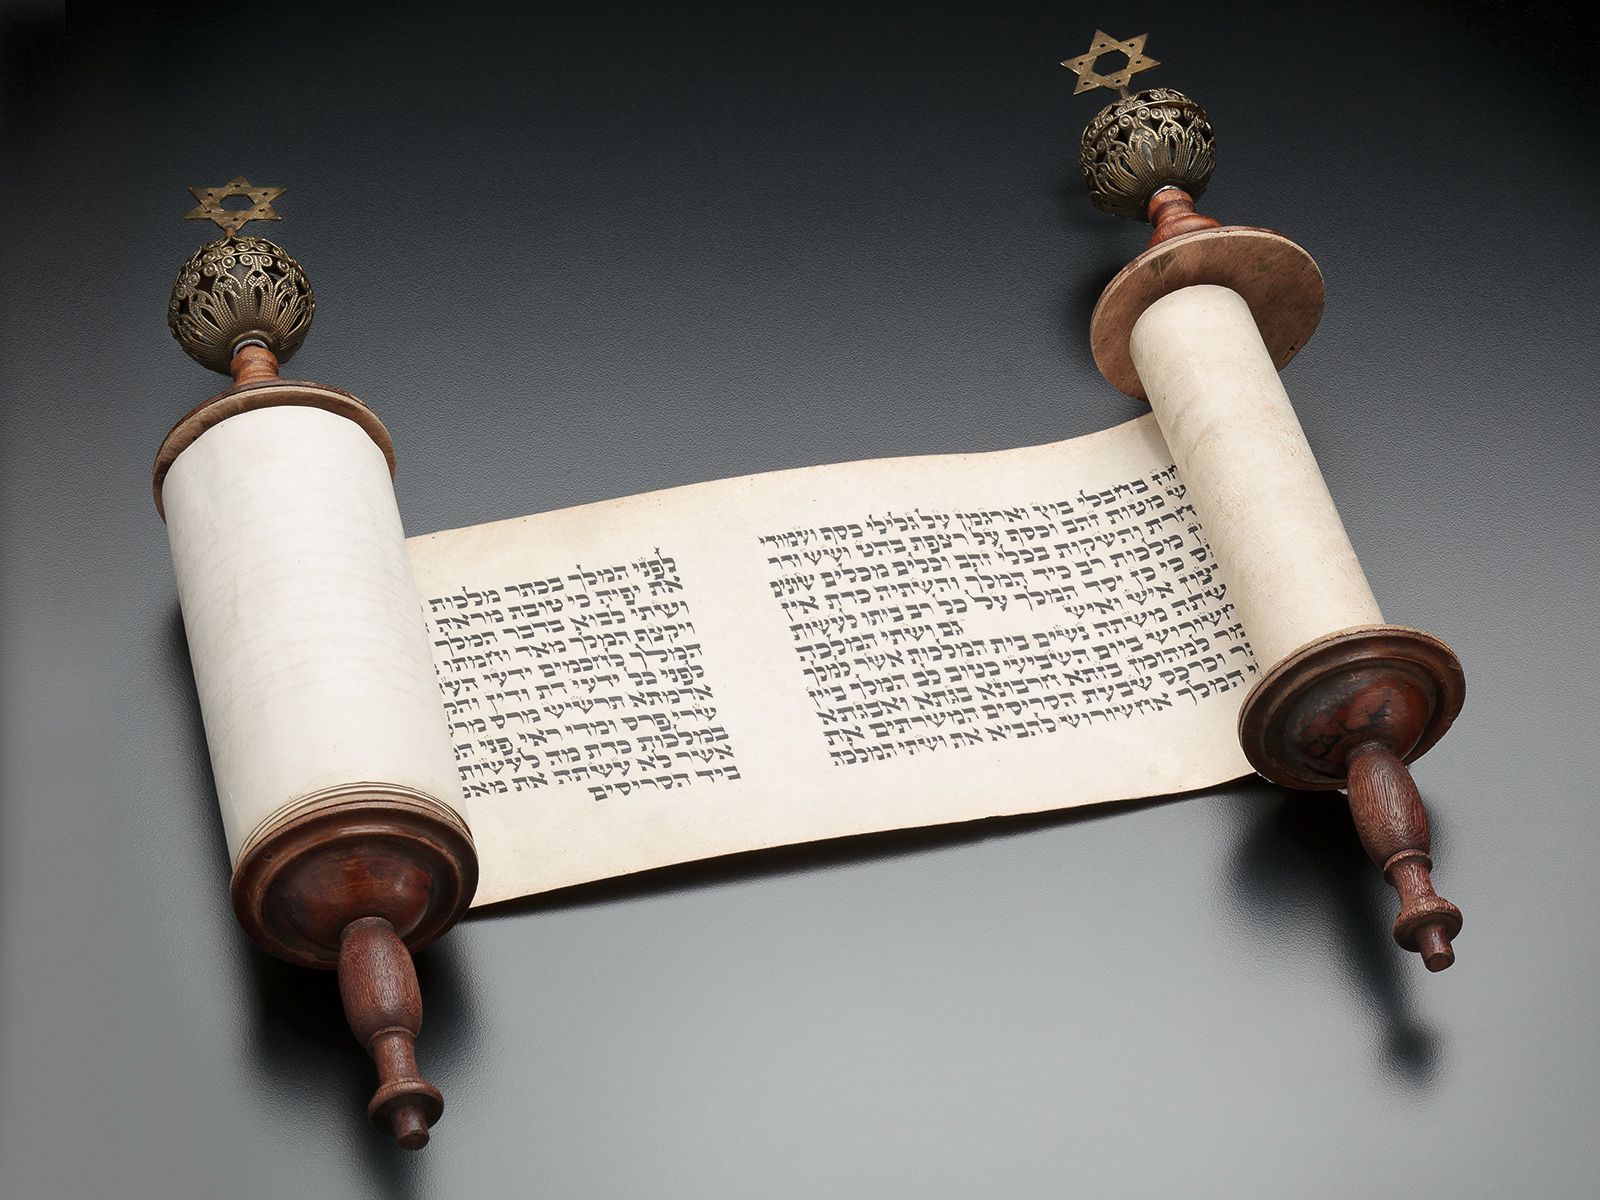 בחבלי בוץ וארגמן על גלילי כסף ועמודי
מטות זהב וכסף על רצפת בהט ושש ודר
והשקות בכלי זהב וכלים מכלים שונים
מלכות רב כיד המלך והשתיה כדת אין
כי כן יסד המלך על כל רב ביתו לעשות
איש ואיש גם ושתי המלכה
עשתה משתה נשים בית המלכות אשר למלך
ביום השביעי כטוב לב המלך ביין
למהומן בזתא חרבונא בגתא ואבגתא
וכרכס שבעת הסריסים המשרתים את
המלך אחשורוש להביא את ושתי המלכה
לפני המלך בכתר מלכות
את יפיה כי טובת מראה
ושתי לבוא בדבר המלך
ויקצף המלך מאד וחמתו
המלך לחכמים ידעי
לפני כל ידעי דת ודין
אדמתא תרשיש מרס
שרי פרס ומדי ראי פני
במלכות כדת מה לעשות
אשר לא עשתה את
ביד הסריסים